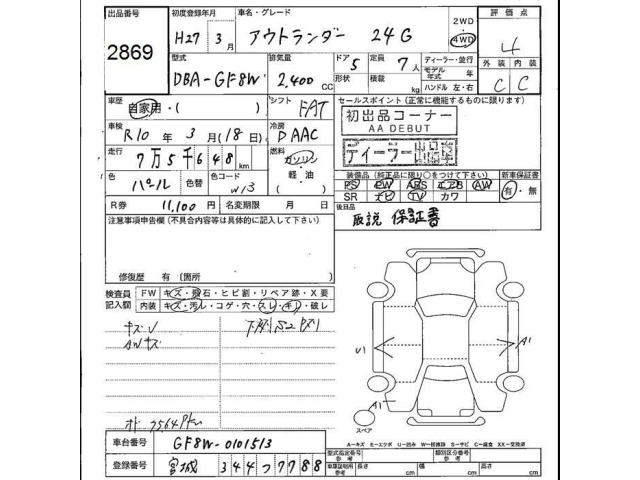 出品番号 初度登録年月 車名・グレード 2WD 評価点
2869 H27年 3月 アウトランダー 24G 4WD 4
型式 排気量 ドア 定員 ディーラー・並行 外装 内装
DBA-GF8W 2,400 CC 5 7人 モデル年式 年 C C
形状 積載 kg ハンドル 左・右
車歴 シフト セールスポイント (正常に機能するものに限ります)
自家用・( ) FAT 初出品コーナー
AA DEBUT
車検 冷房
R10年 3月(18日) AAC ディーラー
走行 燃料
7万5千648 km ガソリン・軽油
装備品 (純正品に限り○をつけて下さい) 新車保証書
色 色替 カラーNo PS PW ABS エアB AW 有・無
パール W13 SR ナビ TV カワ
R券 11,100円 名変期限 月 日 後日品
取説 保証書
注意事項申告欄 (不具合内容等は具体的に記入して下さい)
修復歴 有 (箇所 )
検査員 FW キズ・飛石・ヒビ割・リペア跡・X要
記入欄 内装 キズ・汚レ・コゲ・穴・スレ・キレ・破レ
キズU
AWキズ
U1 A1
A1
スペア
A-キズ E-エクボ U-凹み W-修理跡 S-サビ C-腐食 XX-交換済
車台番号 GF8W-0101513 型式指定番号 参考 類別区分番号 参考
登録番号 宮城 344 つ 7788 車庫証明用 参考 長さ cm 幅 cm 高さ cm